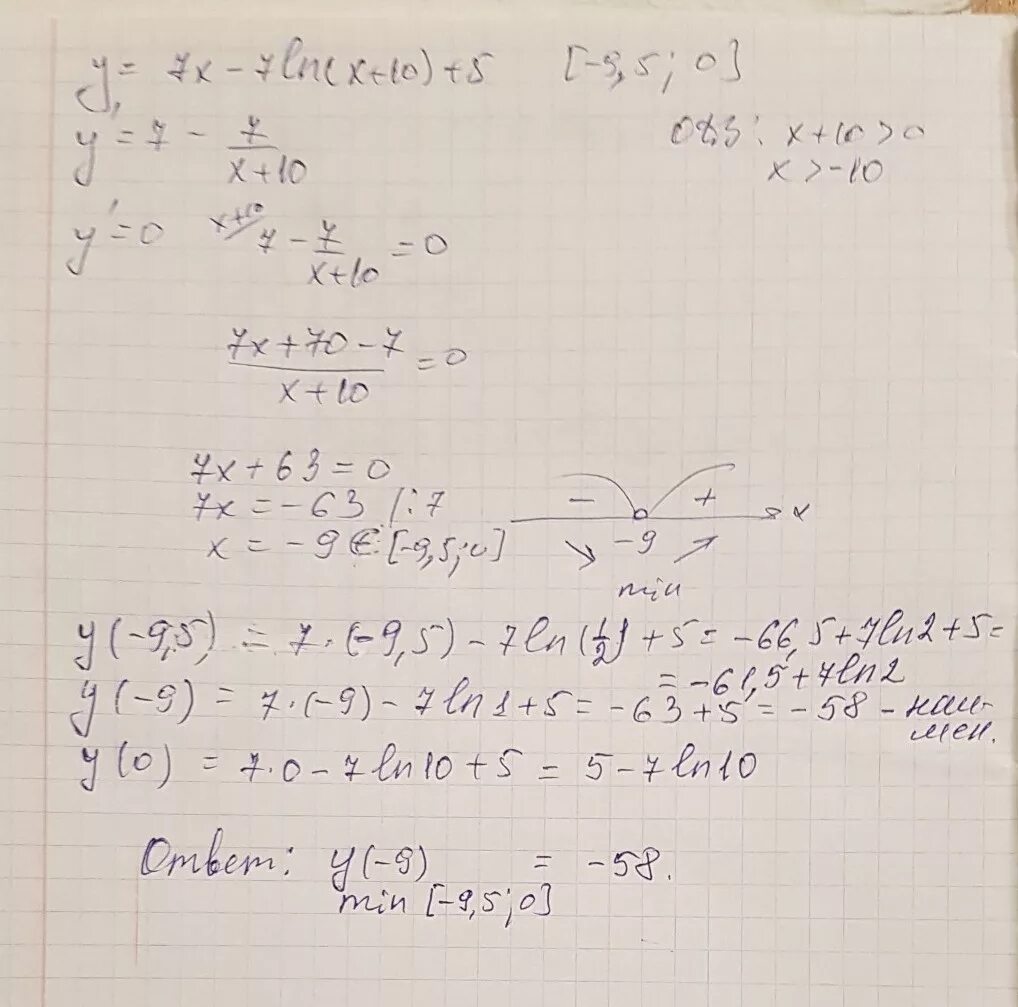 y = 7x - 7ln(x+10) + 5 [-9,5; 0]
y' = 7 - 7/(x+10) ОДЗ: x+10>0
x>-10
y'=0 x+10/ 7 - 7/(x+10) = 0
(7x+70-7)/(x+10) = 0
7x+63=0
7x=-63 /:7
x = -9 ∈ [-9,5; 0]
- + x
-9
min
y(-9,5) = 7·(-9,5) - 7ln(1/2) + 5 = -66,5+7ln2+5=
= -61,5+7ln2
y(-9) = 7·(-9) - 7ln1+5 = -63+5 = -58 - наи-
мен.
y(0) = 7·0 - 7ln10+5 = 5-7ln10
Ответ: y(-9) = -58.
min [-9,5; 0]